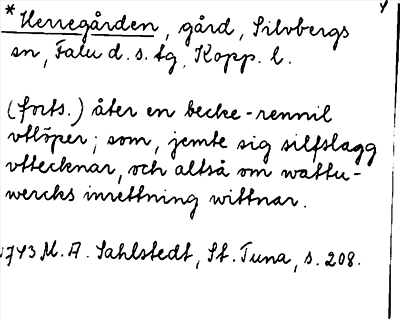 * Herregården, gård, Silvbergs
sn, Falu d. s. tg, Kopp. l.
(forts.) åter en becke-rennil
vtlöper; som, jemte sig silfslagg
vttecknar, och altså om wattu-
wercks inrettning wittnar.
1743 M. A. Sahlstedt, St. Tuna, s. 208.